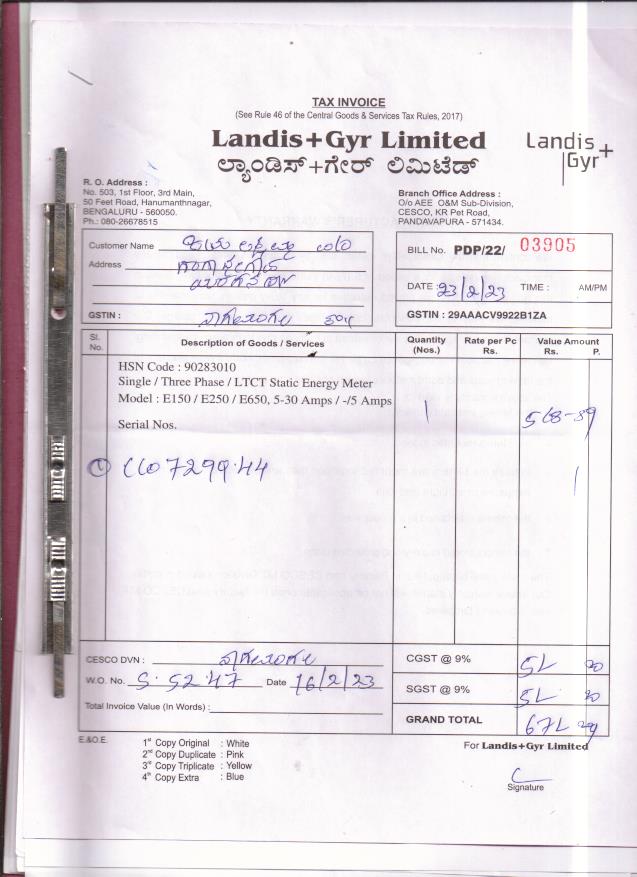 TAX INVOICE
(See Rule 46 of the Central Goods & Services Tax Rules, 2017)
Landis+Gyr Limited
ಲ್ಯಾಂಡಿಸ್+ಗೇರ್ ಲಿಮಿಟೆಡ್
Landis+
Gyr
R. O. Address :
No. 503, 1st Floor, 3rd Main,
50 Feet Road, Hanumanthnagar,
BENGALURU - 560050.
Ph.: 080-26678515
Branch Office Address :
O/o AEE O&M Sub-Division,
CESCO, KR Pet Road,
PANDAVAPURA - 571434.
Customer Name
Address
GSTIN :
BILL No. PDP/22/ 03905
DATE : 23/2/23 TIME : AM/PM
GSTIN : 29AAACV9922B1ZA
Sl. No. Description of Goods / Services Quantity (Nos.) Rate per Pc Rs. Value Amount Rs. P.
HSN Code : 90283010
Single / Three Phase / LTCT Static Energy Meter
Model : E150 / E250 / E650, 5-30 Amps / -/5 Amps 1 568-39
Serial Nos.
CESCO DVN :
CGST @ 9%
W.O. No. Date 16/2/23
SGST @ 9%
Total Invoice Value (In Words) :
GRAND TOTAL
E.&O.E.
1st Copy Original : White
2nd Copy Duplicate : Pink
3rd Copy Triplicate : Yellow
4th Copy Extra : Blue
For Landis+Gyr Limited
Signature